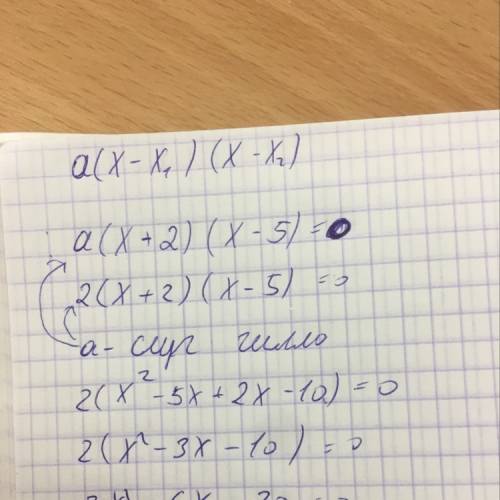 a(x-x₁)(x-x₂)
a(x+2)(x-5)=0
2(x+2)(x-5)=0
a-
2(x²-5x+2x-10)=0
2(x²-3x-10)=0